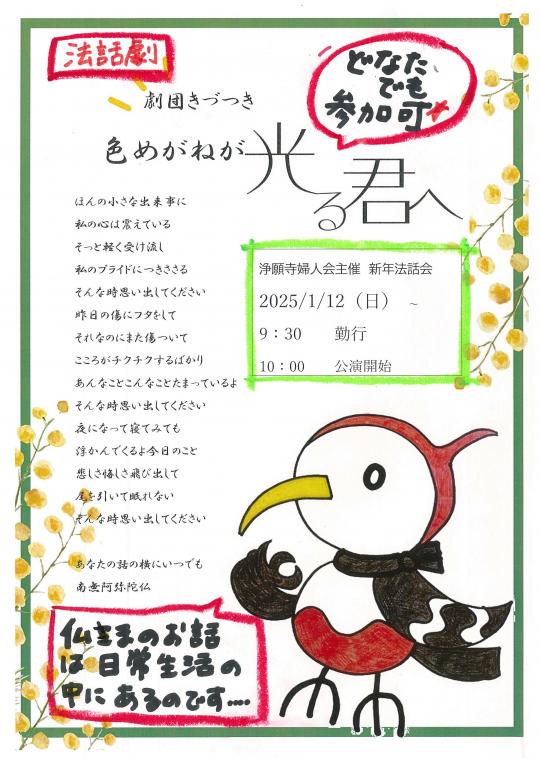 法話劇
どなた
でも
参加可
劇団きづつき
色めがねが光る君へ
ほんの小さな出来事に
私の心は震えている
そっと軽く受け流し
私のプライドにつきささる
そんな時思い出してください
昨日の傷にフタをして
それなのにまた傷ついて
こころがチクチクするばかり
あんなことこんなことたまっているよ
そんな時思い出してください
夜になって寝てみても
浮かんでくるよ今日のこと
悲しさ悔しさ飛び出して
尾を引いて眠れない
そんな時思い出してください
あなたの話の横にいつでも
南無阿弥陀仏
浄願寺婦人会主催 新年法話会
2025/1/12(日) ~
9:30 勤行
10:00 公演開始
仏さまのお話
は日常生活の
中にあるのです....